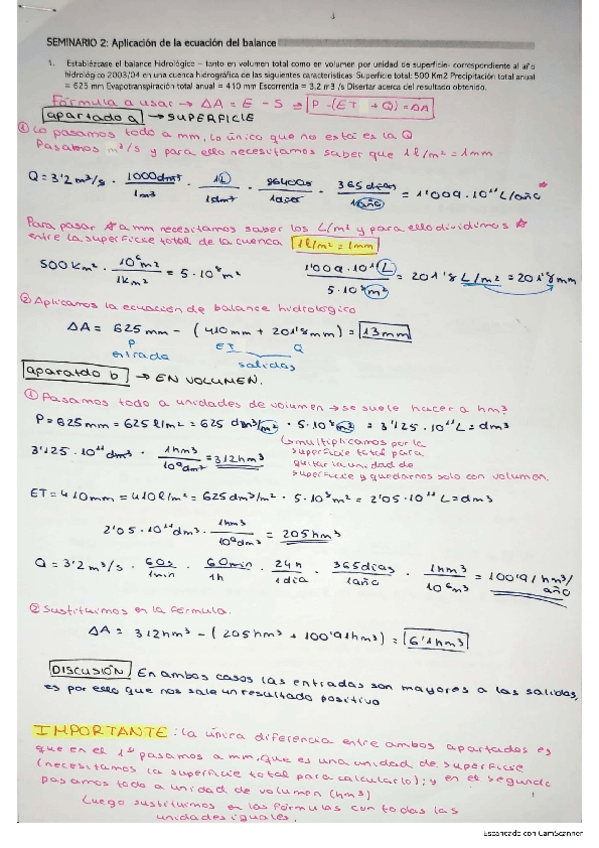 1
SEMINARIO 2: Aplicación de la ecuación del balance
1. Establézcase el balance hidrológico – tanto en volumen total como en volumen por unidad de superficie- correspondiente al año
hidrológico 2003/04 en una cuenca hidrográfica de las siguientes características: Superficie total: 500 Km2 Precipitación total anual
= 625 mm Evapotranspiración total anual = 410 mm Escorrentía = 3,2 m3 /s Disertar acerca del resultado obtenido.
Fórmula a usar → ΔA = E - S ⇒ P - (ET + Q) = ΔA
apartado a → SUPERFICIE
① Lo pasamos todo a mm, lo único que no está es la Q
Pasamos m³/s y para ello necesitamos saber que 1 l/m² = 1mm
Q = 3'2 m³/s · 1000dm³/1m³ · 1L/1dm³ · 86400s/1día · 365días/1año = 1'009 · 10¹¹ L/año *
Para pasar * a mm necesitamos saber los L/m² y para ello dividimos *
entre la superficie total de la cuenca 1 l/m² = 1mm
500 Km² · 10⁶ m²/1Km² = 5 · 10⁸ m² 1'009 · 10¹¹ L/5 · 10⁸ m² = 201'8 L/m² = 201'8 mm
② Aplicamos la ecuación de balance hidrológico
ΔA = 625 mm - (410 mm + 201'8 mm) = 13mm
P ET Q
entrada salidas
aparatdo b → EN VOLUMEN.
① Pasamos todo a unidades de volumen → se suele hacer a hm³
P = 625 mm = 625 l/m² = 625 dm³/m² · 5 · 10⁸ m² = 3'125 · 10¹¹ L = dm³
↳ multiplicamos por la
3'125 · 10¹¹ dm³ · 1hm³/10⁹dm³ = 312hm³ superficie total para
quitar la unidad de
superficie y quedarnos solo con volumen.
ET = 410mm = 410 l/m² = 625 dm³/m² · 5 · 10⁸ m² = 2'05 · 10¹¹ L = dm³
2'05 · 10¹¹ dm³ · 1hm³/10⁹dm³ = 205hm³
Q = 3'2 m³/s · 60s/1min · 60min/1h · 24h/1día · 365días/1año · 1hm³/10⁶m³ = 100'91 hm³/año
② Sustituimos en la fórmula.
ΔA = 312hm³ - (205hm³ + 100'91hm³) = 6'1hm³
DISCUSIÓN En ambos casos las entradas son mayores a las salidas,
es por ello que nos sale un resultado positivo
IMPORTANTE: la única diferencia entre ambos apartados es
que en el 1º pasamos a mm, que es una unidad de superficie
(necesitamos la superficie total para calcularlo); y en el segundo
pasamos todo a unidad de volumen (hm³)
Luego sustituimos en las fórmulas con todas las
unidades iguales.
1
Escaneado con CamScanner